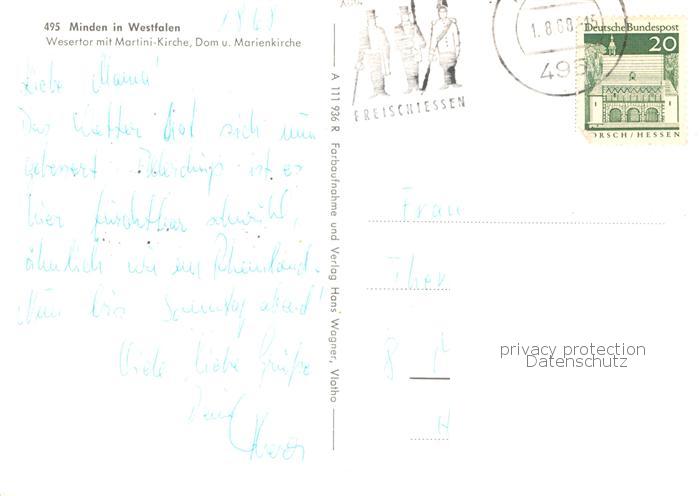 495 Minden in Westfalen
Wesertor mit Martini-Kirche, Dom u. Marienkirche
1968
FREISCHIESSEN
1.8.68
495
Deutsche Bundespost
20
ORSCH/HESSEN
Liebe Mama!
Das Wetter hat sich nun
gebessert. Allerdings ist es
hier furchtbar schwül,
ähnlich wie im Rheinland.
Nun bis Sonntag abend!
Viele liebe Grüße
Dein
A 111 936 R Farbaufnahme und Verlag Hans Wagner, Vlotho
Frau
Ther
privacy protection
Datenschutz
H